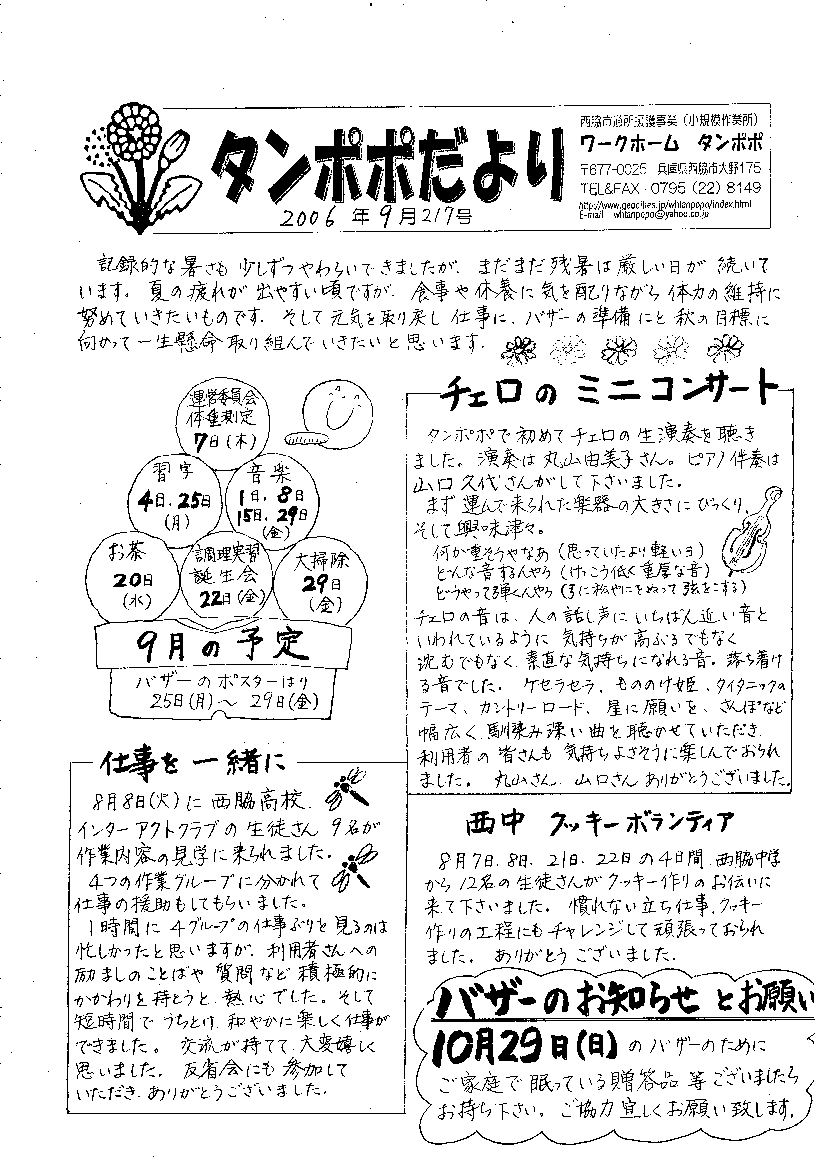 タンポポだより
2006年9月217号
西脇市通所援護事業(小規模作業所)
ワークホーム タンポポ
〒677-0025 兵庫県西脇市大野175
TEL&FAX 0795(22)8149
http://www.geocities.jp/whtanpopo/index.html
E-mail whtanpopo@yahoo.co.jp
記録的な暑さも少しずつやわらいできましたが、まだまだ残暑は厳しい日が続いて
います。夏の疲れが出やすい頃ですが、食事や休養に気を配りながら体力の維持に
努めていきたいものです。そして元気を取り戻し仕事に、バザーの準備にと秋の目標に
向かって一生懸命取り組んでいきたいと思います。
運営委員会
体重測定
7日(木)
習字
4日、25日
(月)
音楽
1日、8日
15日、29日
(金)
お茶
20日
(水)
調理実習
誕生会
22日(金)
大掃除
29日
(金)
9月の予定
バザーのポスターはり
25日(月)~29日(金)
チェロのミニコンサート
タンポポで初めてチェロの生演奏を聴き
ました。演奏は丸山由美子さん。ピアノ伴奏は
山口久代さんがして下さいました。
まず運んで来られた楽器の大きさにびっくり、
そして興味津々。
何か重そうやなあ(思っていたより軽いヨ)
どんな音するんやろ(けっこう低く重厚な音)
どうやって弾くんやろ(弓に松やにをぬって弦をこする)
チェロの音は、人の話し声にいちばん近い音と
いわれているように気持ちが高ぶるでもなく
沈むでもなく、素直な気持ちになれる音。落ち着け
る音でした。ケセラセラ、もののけ姫、タイタニックの
テーマ、カントリーロード、星に願いを、さんぽなど
幅広く、馴染み深い曲を聴かせていただき
利用者の皆さんも気持ちよさそうに楽しんでおられ
ました。丸山さん、山口さんありがとうございました。
仕事を一緒に
8月8日(火)に西脇高校、
インターアクトクラブの生徒さん9名が
作業内容の見学に来られました。
4つの作業グループに分かれて
仕事の援助もしてもらいました。
1時間に4グループの仕事ぶりを見るのは
忙しかったと思いますが、利用者さんへの
励ましのことばや質問など積極的に
かかわりを持とうと、熱心でした。そして
短時間でうちとけ、和やかに楽しく仕事が
できました。交流が持てて、大変嬉しく
思いました。反省会にも参加して
いただき、ありがとうございました。
西中 クッキーボランティア
8月7日、8日、21日、22日の4日間、西脇中学
から12名の生徒さんがクッキー作りのお伝いに
来て下さいました。慣れない立ち仕事、クッキー
作りの工程にもチャレンジして頑張っておられ
ました。ありがとうございました。
バザーのお知らせとお願い
10月29日(日)のバザーのために
ご家庭で眠っている贈答品等ございましたら
お持ち下さい。ご協力宜しくお願い致します。